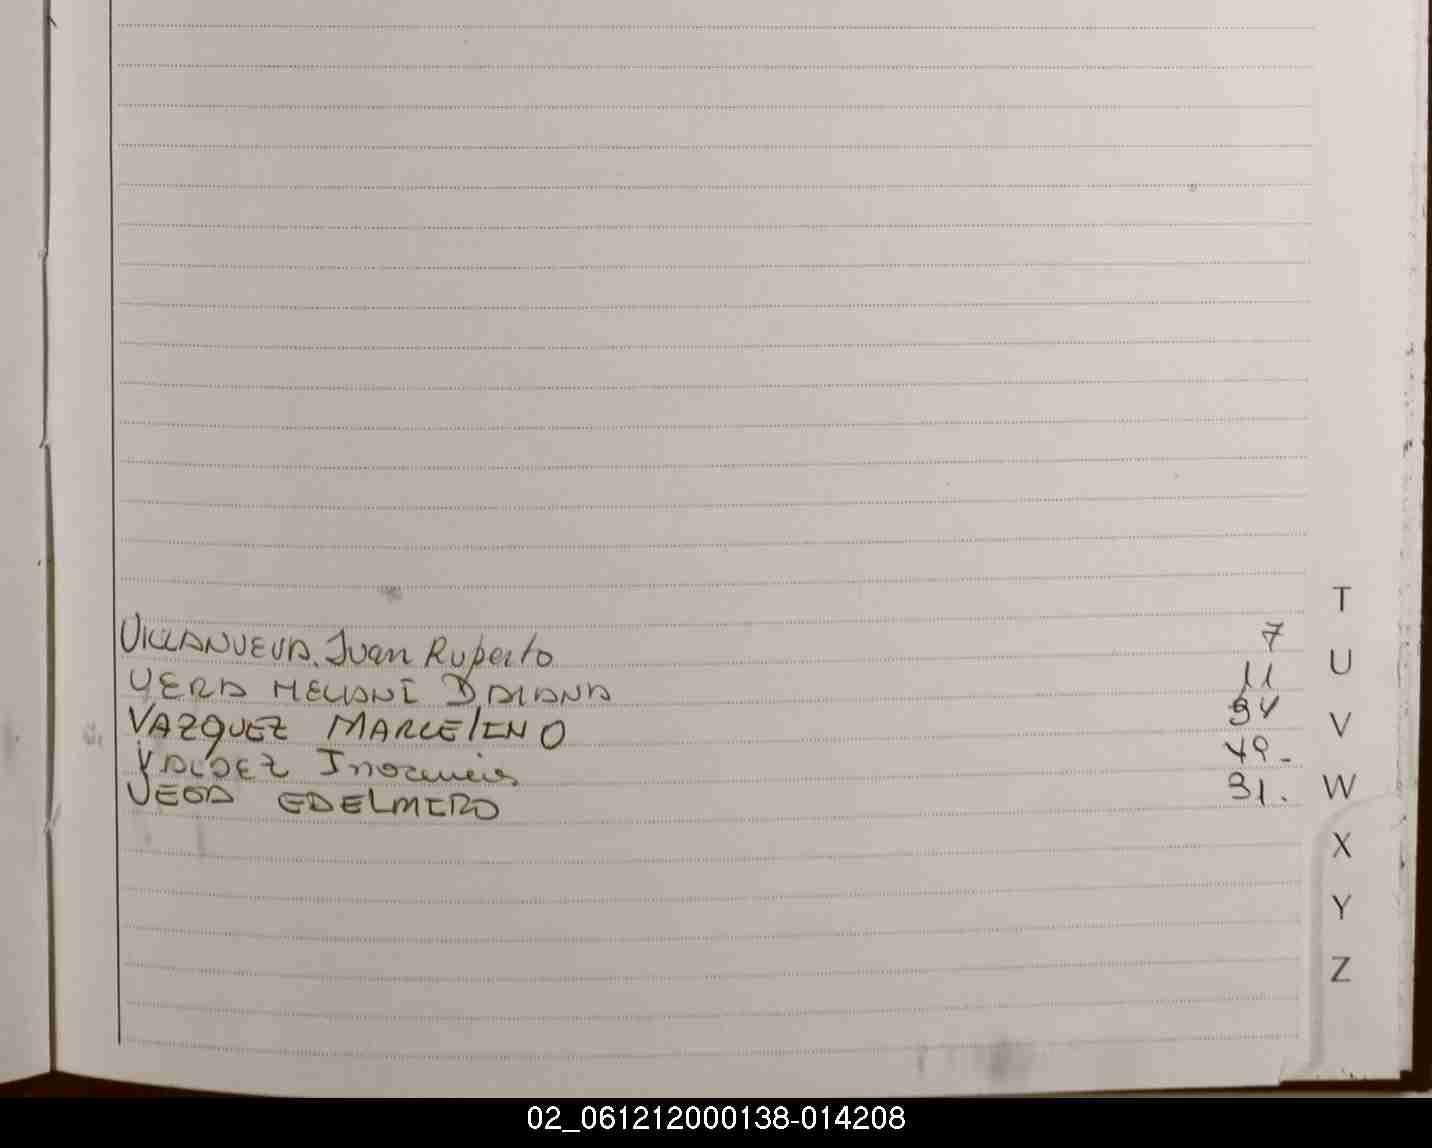 VILLANUEVA. Juan Ruperto 7
VERA MELIANI DAIANA 11
VAZQUEZ MARCELINO 34
VALDEZ Inocencia 49.
VEGA EDELMIRO 31.
T
U
V
W
X
Y
Z
02_061212000138-014208